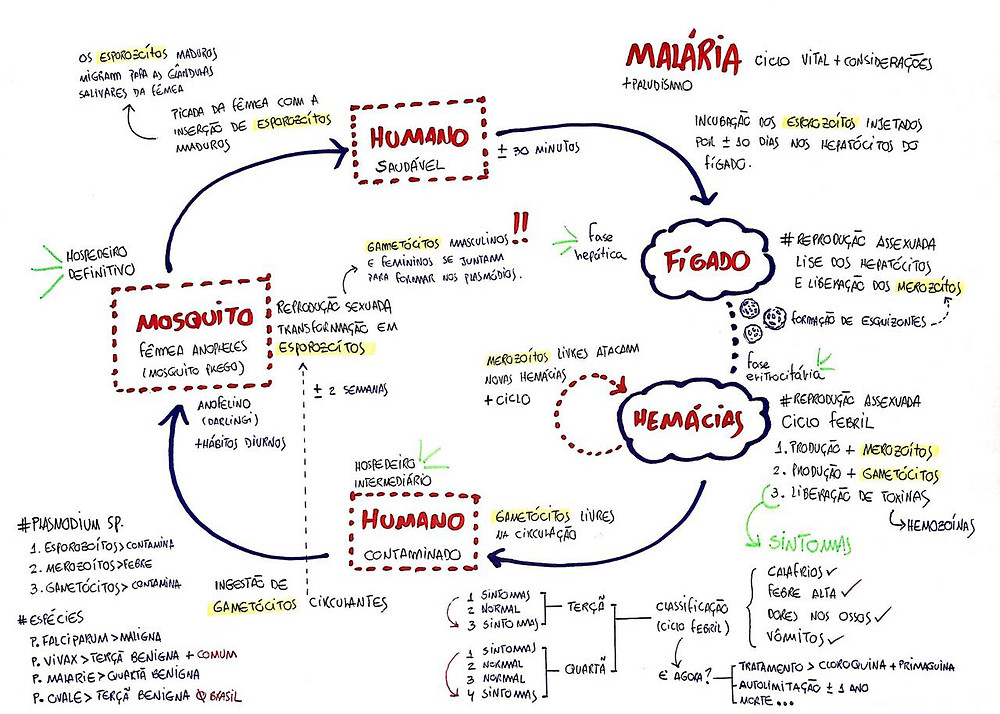 MALÁRIA CICLO VITAL + CONSIDERAÇÕES
+PALUDISMO
OS ESPOROZOÍTOS MADUROS
MIGRAM PARA AS GLÂNDULAS
SALIVARES DA FÊMEA
PICADA DA FÊMEA COM A
INSERÇÃO DE ESPOROZOÍTOS
MADUROS
HUMANO
SAUDÁVEL
± 30 MINUTOS
INCUBAÇÃO DOS ESPOROZOÍTOS INJETADOS
POR ± 10 DIAS NOS HEPATÓCITOS DO
FÍGADO.
FÍGADO
FASE
HEPÁTICA
# REPRODUÇÃO ASSEXUADA
LISE DOS HEPATÓCITOS
E LIBERAÇÃO DOS MEROZOÍTOS
FORMAÇÃO DE ESQUIZONTES
FASE
ERITROCITÁRIA
HEMÁCIAS
MEROZOÍTOS LIVRES ATACAM
NOVAS HEMÁCIAS
+ CICLO
# REPRODUÇÃO ASSEXUADA
CICLO FEBRIL
1. PRODUÇÃO + MEROZOÍTOS
2. PRODUÇÃO + GAMETÓCITOS
3. LIBERAÇÃO DE TOXINAS
HEMOZOÍNAS
SINTOMAS
CALAFRIOS ✓
FEBRE ALTA ✓
DORES NOS OSSOS ✓
VÔMITOS ✓
GAMETÓCITOS LIVRES
NA CIRCULAÇÃO
HOSPEDEIRO
INTERMEDIÁRIO
HUMANO
CONTAMINADO
INGESTÃO DE
GAMETÓCITOS CIRCULANTES
HOSPEDEIRO
DEFINITIVO
MOSQUITO
FÊMEA ANOPHELES
(MOSQUITO PREGO)
ANOFELINO
(DARLINGI)
+HÁBITOS DIURNOS
REPRODUÇÃO SEXUADA
TRANSFORMAÇÃO EM
ESPOROZOÍTOS
± 2 SEMANAS
GAMETÓCITOS MASCULINOS !!
E FEMININOS SE JUNTAM
PARA FORMAR NOS PLASMÓDIOS.
#PLASMODIUM SP.
1. ESPOROZOÍTOS > CONTAMINA
2. MEROZOÍTOS > FEBRE
3. GAMETÓCITOS > CONTAMINA
# ESPÉCIES
P. FALCIPARUM > MALIGNA
P. VIVAX > TERÇÃ BENIGNA + COMUM
P. MALARIE > QUARTÃ BENIGNA
P. OVALE > TERÇÃ BENIGNA BRASIL
1 SINTOMAS
2 NORMAL
3 SINTOMAS
TERÇÃ
1 SINTOMAS
2 NORMAL
3 NORMAL
4 SINTOMAS
QUARTÃ
CLASSIFICAÇÃO
(CICLO FEBRIL)
E AGORA?
TRATAMENTO > CLOROQUINA + PRIMAQUINA
AUTOLIMITAÇÃO ± 1 ANO
MORTE...